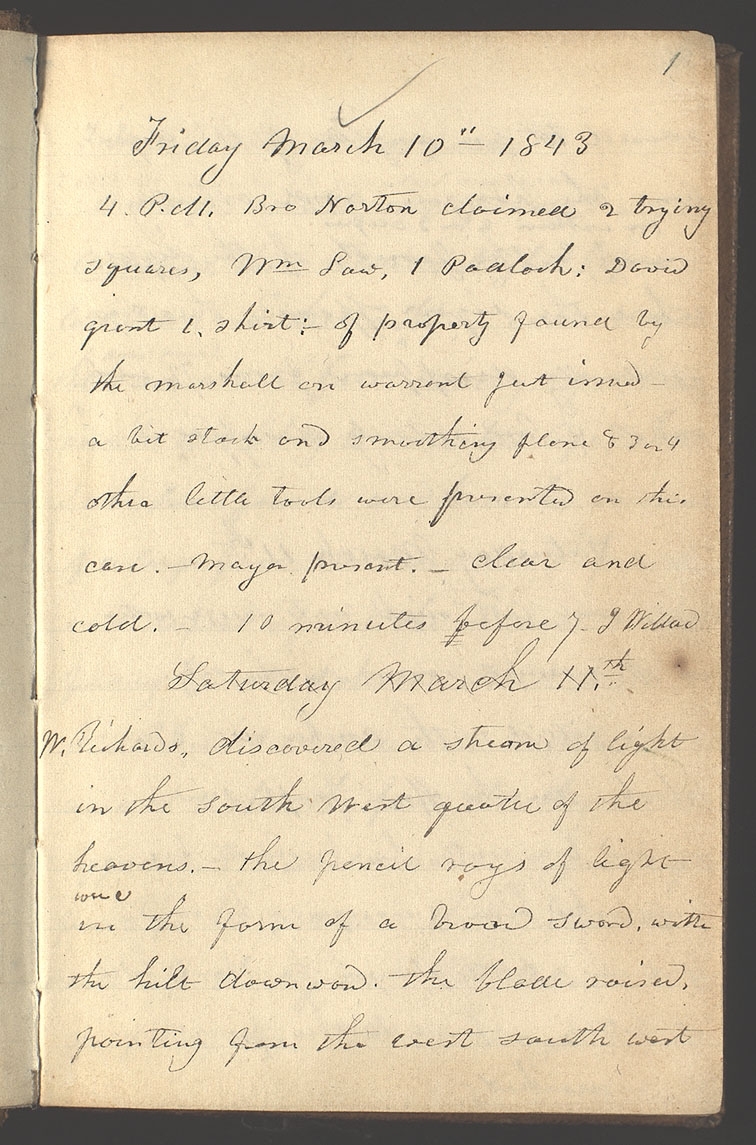 1
Friday March 10th 1843
4. P.M. Bro Norton claimed 2 trying
squares, Wm Law, 1 Padlock: David
grant 1. shirt:- of property found by
the marshall on warrent just issued -
a bit stock and smoothing plane & 3 or 4
other little tools were presented on this
case. - Mayor present. - clear and
cold. - 10 minutes before 7- J Willard
Saturday March 11.th
W. Richards, discovered a stream of light
in the South West quarter of the
heavens. - the pencil rays of light
were
in the form of a broad sword, with
the hilt downward. the blade raised,
pointing from the west south west